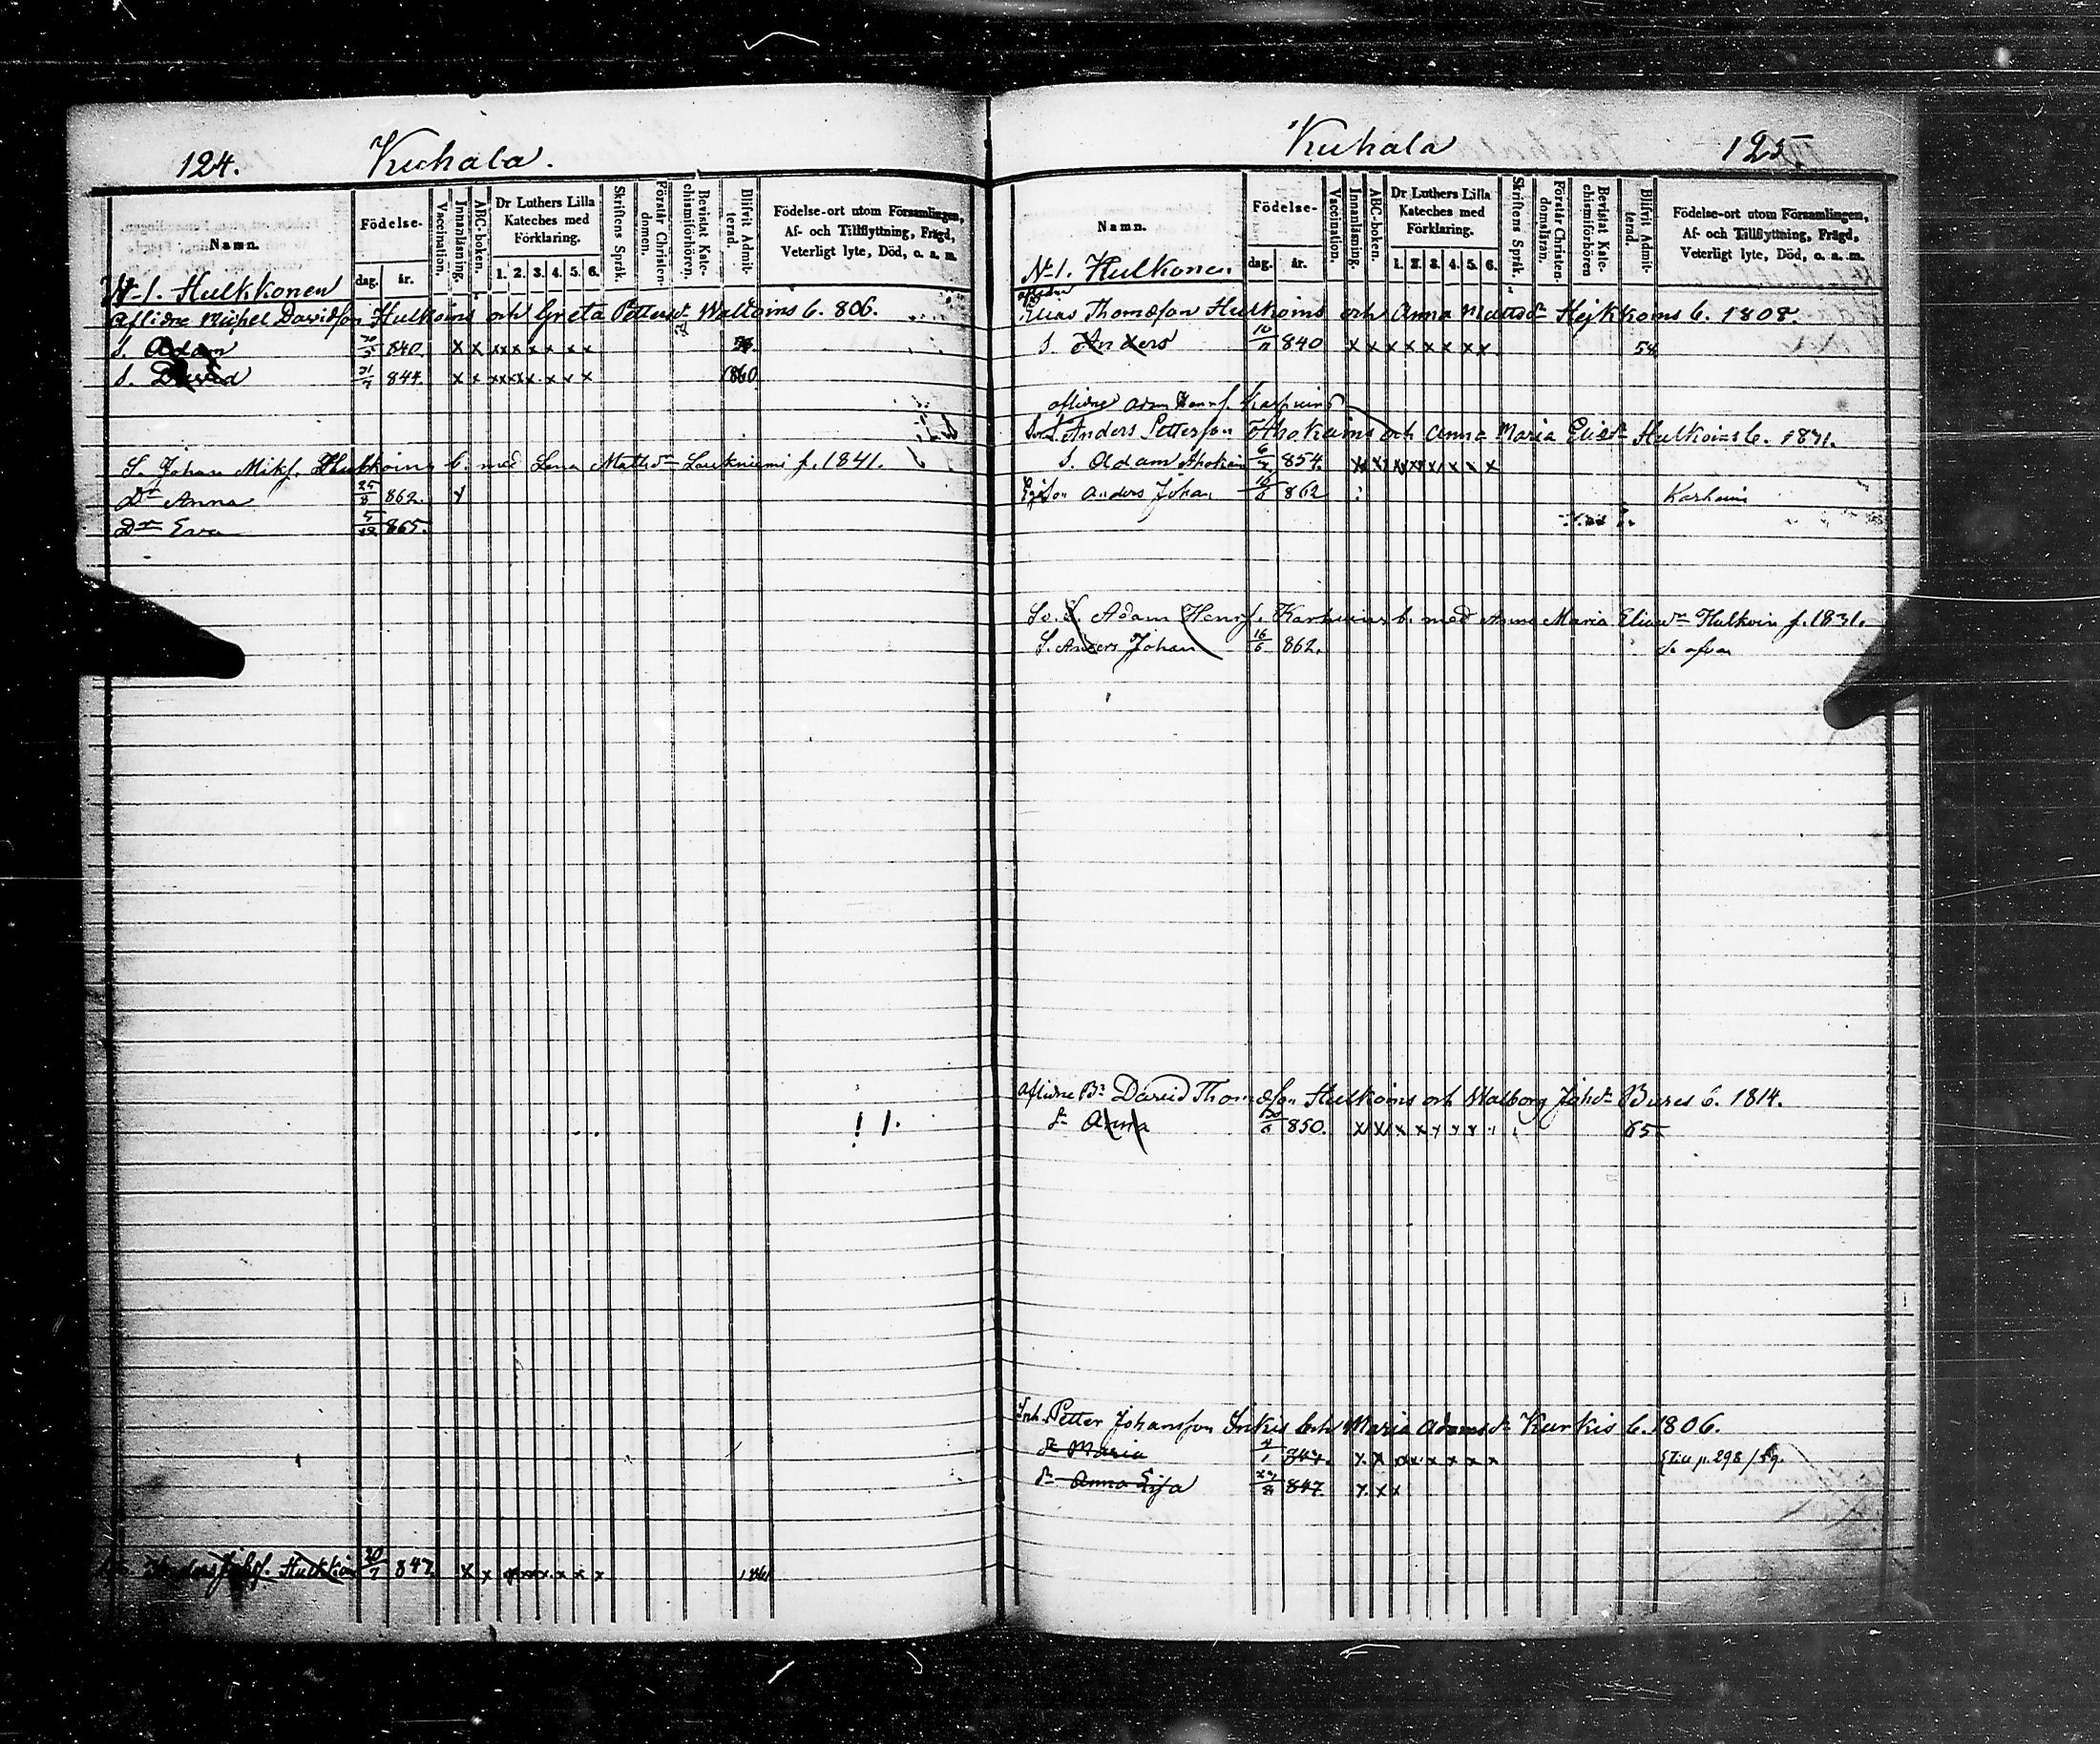 124. Kuhala.
Namn.
Födelse-
dag. år.
Vaccination.
Innanläsning.
ABC-boken.
Dr Luthers Lilla Kateches med Förklaring.
1. 2. 3. 4. 5. 6.
Skriftens Språk.
Förstår Christendomen.
Bevistat Katechismiförhören.
Blifvit Admitterad.
Födelse-ort utom Församlingen,
Af- och Tillflyttning, Frägd,
Veterligt lyte, Död, o. a. m.
N-1. Hulkkonen
Aflidne Michel Davidson Hulkoins och Greta Pettersdr Waltoins b. 806.
S. Adam 840 x x x x x x x x
S. David 21/7 844. x x x x x x x x 1860
S. Johan Miks. Hulkoins b. med Lena Mathsdr Laukniemi f. 1841.
Dr Anna 25/8 862. x
Dr Eva 5/12 865.
Anders Johs. Hulkkoin 20/7 847 x x x x x x x x
Kuhala 125
Namn.
Födelse-
dag. år.
Vaccination.
Innanläsning.
ABC-boken.
Dr Luthers Lilla Kateches med Förklaring.
1. 2. 3. 4. 5. 6.
Skriftens Språk.
Förstår Christendomsläran.
Bevistat Katechismiförhören
Blifvit Admitterad.
Födelse-ort utom Församlingen,
Af- och Tillflyttning, Frägd,
Veterligt lyte, Död, o. a. m.
N-1. Hulkonen
aflidne
Elias Thomasson Hulkoins och Anna Mattsdr Hejkkoins b. 1808.
S. Anders 10/11 840 x x x x x x x x 54
aflidne Adam Henr. s. Karhuins
Anders Petterson Ahokains och Anna Maria Eliædr Hulkoins b. 1831.
S. Adam Ahokain 6/7 854. x x x x x x x x
Anders Johan 16/6 862 Karhuin
So. S. Adam Henr. s. Karhuins b. med Anna Maria Eliædr Hulkoin f. 1831.
S. Anders Johan 16/6 862. Se ofvan
Aflidne Br David Thomæson Hulkoins och Walborg Johsdr Bures b. 1814.
Dr Anna 850. x x x x x x x 65
Inh. Petter Johansson Inkis och Maria Adamsdr Kurkis b. 1806.
Dr Maria 847. x x x x x x x x p. 298 / 59.
Dr Anna Lisa 847. x x x